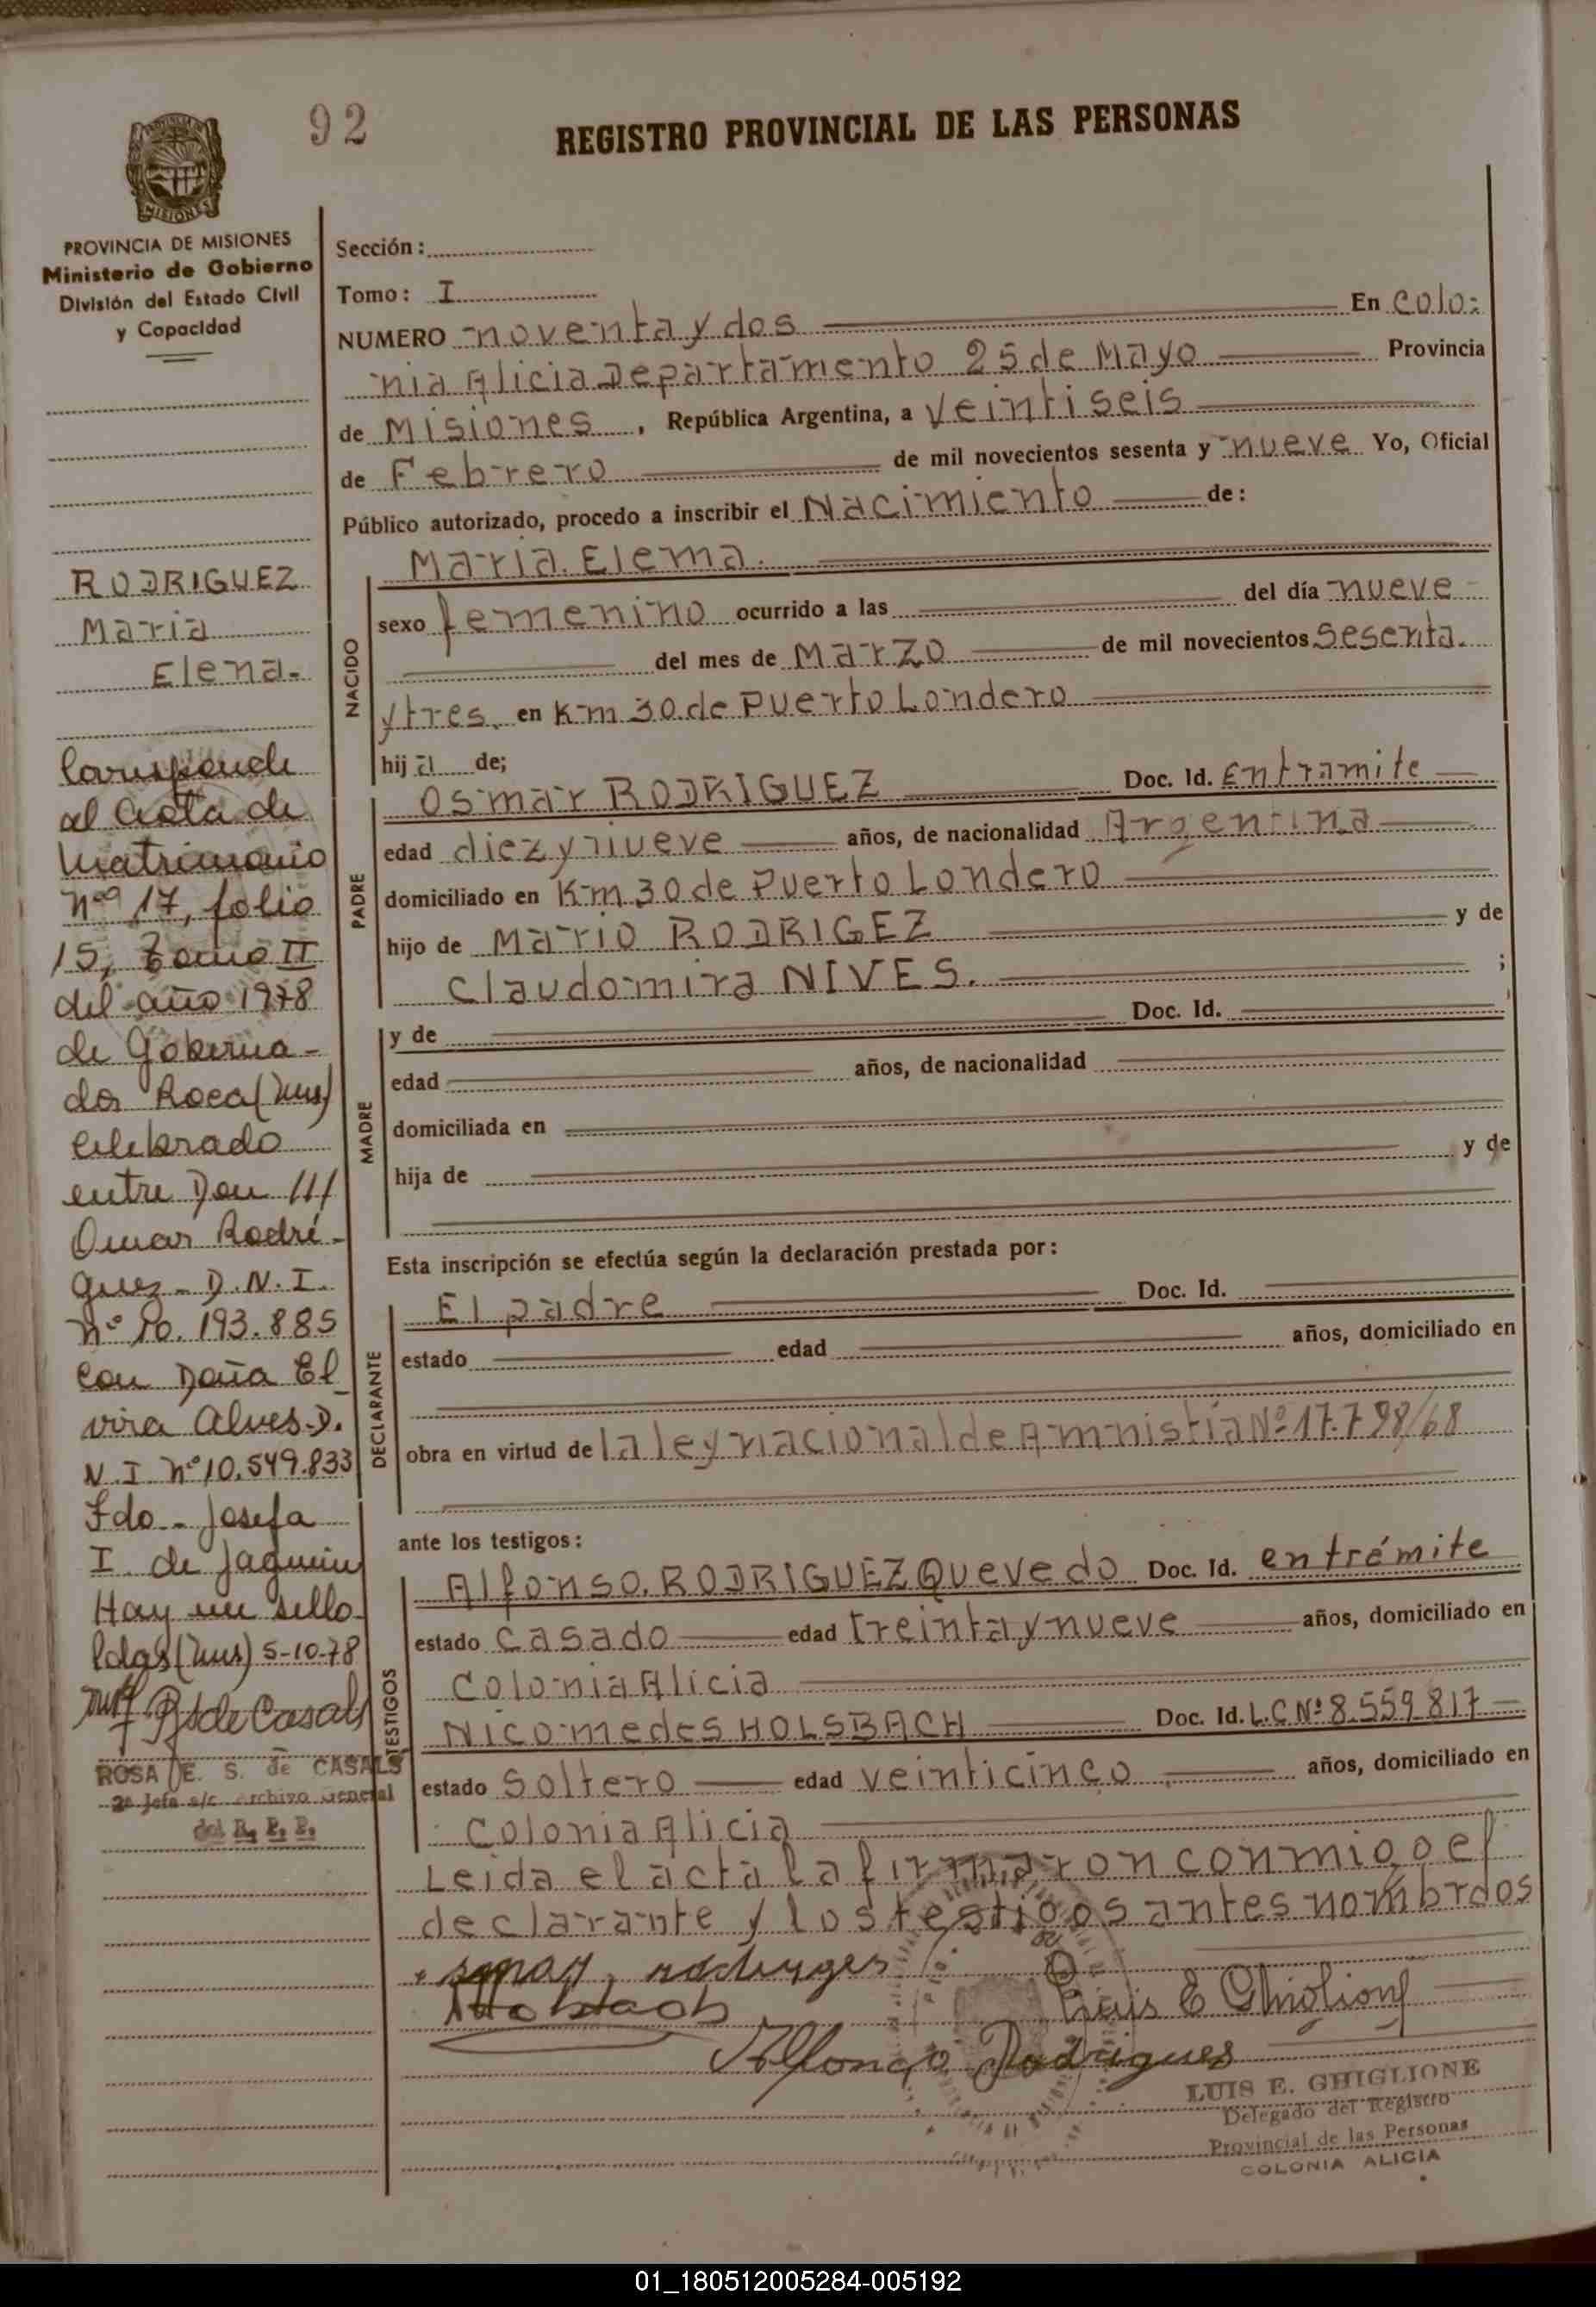 92
REGISTRO PROVINCIAL DE LAS PERSONAS
PROVINCIA DE MISIONES
Ministerio de Gobierno
División del Estado Civil
y Capacidad
RODRIGUEZ
Maria
Elena.
Corresponde
al Acta de
Matrimonio
nº 17, folio
15, Tomo II
del año 1978
de Goberna-
dor Roca (Mns)
celebrado
entre Don ///
Omar Rodri-
guez - D.N.I.
nº 10.193.885
con Doña El
vira Alves - D.
N.I nº 10.549.833
Fdo - Josefa
I. de Jaquim
Hay un sello
Pdas (Mns) 5-10-78
R S de Casals
ROSA E. S. de CASALS
2ª Jefa a/c Archivo General
del R. P. P.
Sección:
Tomo: I
NUMERO noventa y dos En Colo=
nia Alicia Departamento 25 de Mayo Provincia
de Misiones, República Argentina, a Veintiseis
de Febrero de mil novecientos sesenta y nueve Yo, Oficial
Público autorizado, procedo a inscribir el Nacimiento de:
NACIDO
Maria. Elema.
sexo femenino ocurrido a las del día nueve
del mes de Marzo de mil novecientos Sesenta.
y tres. en Km 30. de Puerto Londero
hija de;
PADRE
Osmar RODRIGUEZ Doc. Id. Entramite
edad diez y nueve años, de nacionalidad Argentina
domiciliado en Km 30 de Puerto Londero
hijo de Mario RODRIGEZ y de
Claudomira NIVES. ;
MADRE
y de Doc. Id.
edad años, de nacionalidad
domiciliada en
hija de y de
Esta inscripción se efectúa según la declaración prestada por:
DECLARANTE
El padre Doc. Id.
estado edad años, domiciliado en
obra en virtud de la ley nacional de Amnistia Nº 17.798/68
ante los testigos:
TESTIGOS
Alfonso. RODRIGUEZ Quevedo Doc. Id. entrémite
estado Casado edad treinta y nueve años, domiciliado en
Colonia Alicia
Nicomedes HOLSBACH Doc. Id. L.C Nº 8.559.817
estado Soltero edad Veinticinco años, domiciliado en
Colonia Alicia
Leida el acta la firmaron conmigo el
declarante y los testigos antes nombrdos
Luis E Ghiglione
Alfonso Rodrigues
LUIS E. GHIGLIONE
Delegado del Registro
Provincial de las Personas
COLONIA ALICIA
01_180512005284-005192